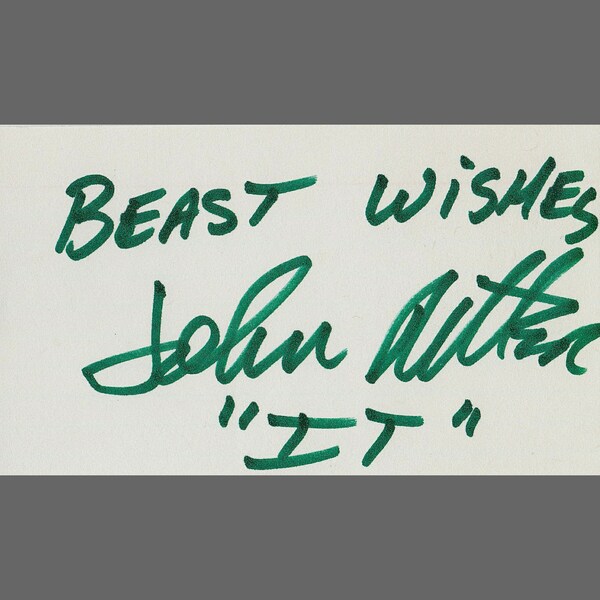 BEAST WiSHES
John
"IT"